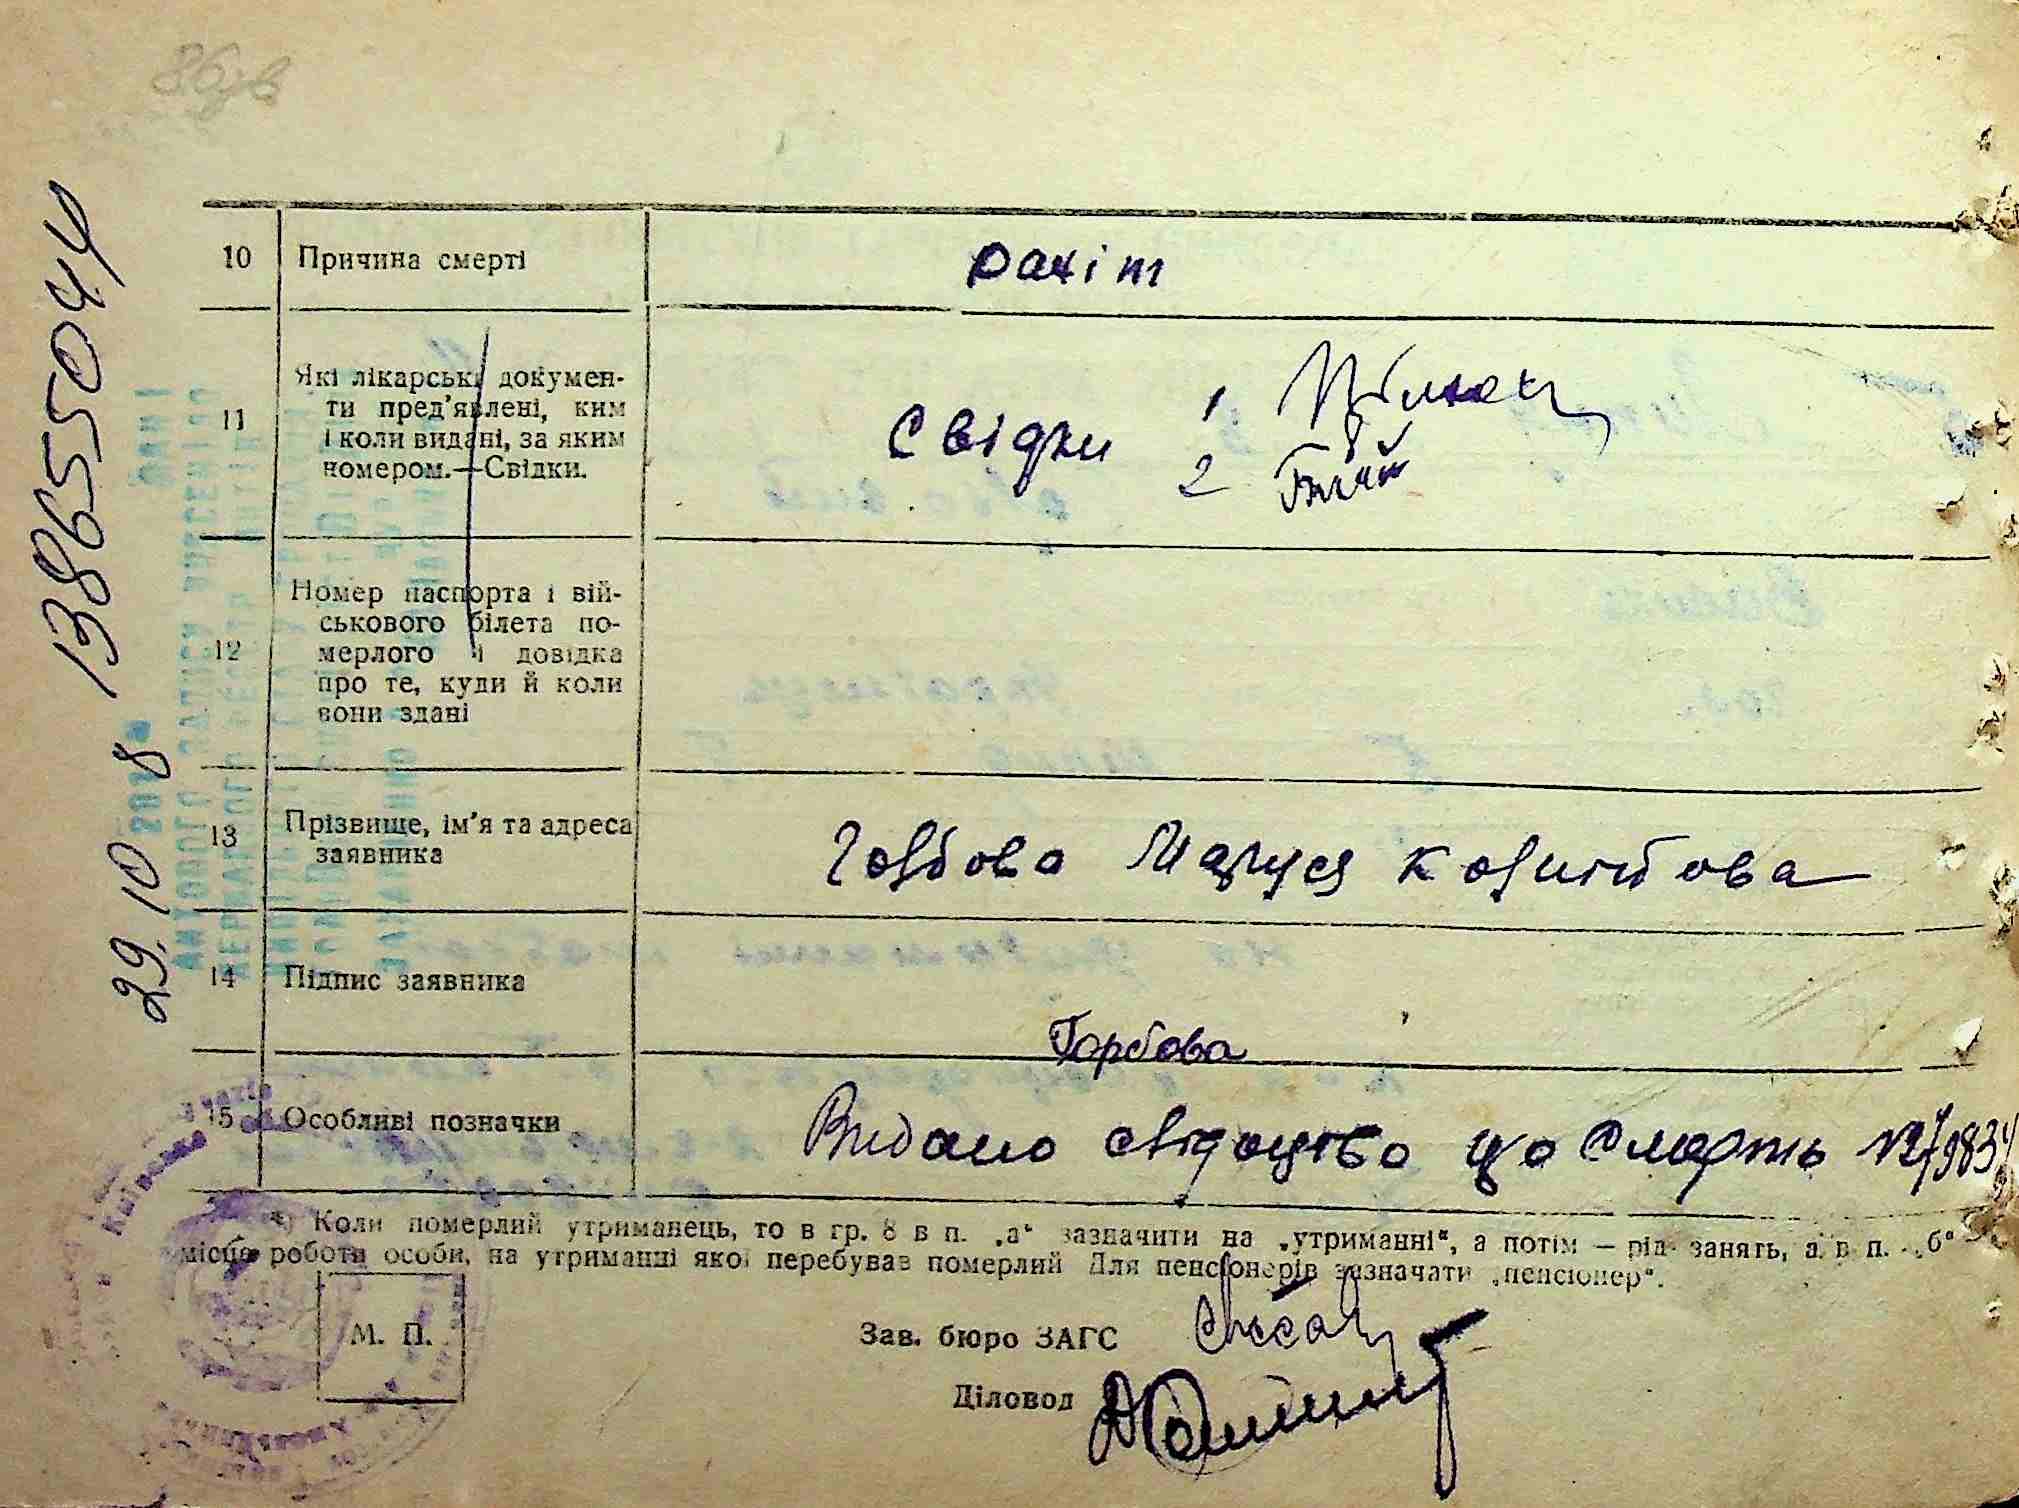 13865504У
29.10 8
10 Причина смерті рахіт
11 Які лікарські докумен-
ти пред'явлені, ким
і коли видані, за яким
номером.—Свідки.
Свідки 1
2
12 Номер паспорта і вій-
ськового білета по-
мерлого і довідка
про те, куди й коли
вони здані
13 Прізвище, ім'я та адреса
заявника
Горбова Маруся
14 Підпис заявника
Горбова
15 Особливі позначки
Видано свідоцтво що смерть №
*) Коли померлий утриманець, то в гр. 8 в п. „а“ зазначити на „утриманні“, а потім — рід занять, а в п. „б“
місце роботи особи, на утриманні якої перебував померлий Для пенсіонерів зазначати „пенсіонер“.
М. П.
Зав. бюро ЗАГС
Діловод